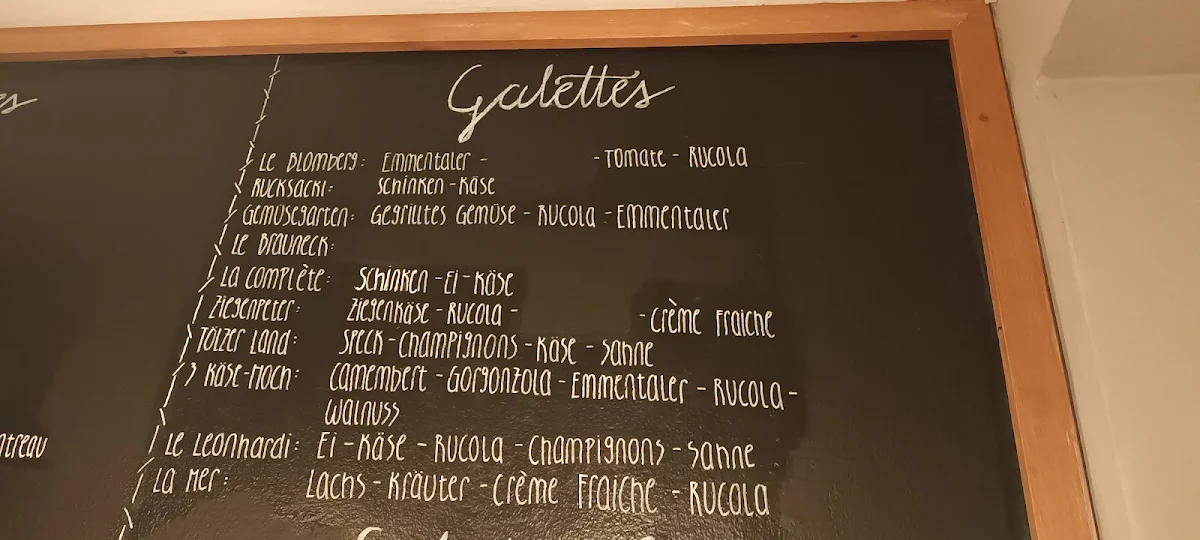 es
Galettes
Le Blomberg: Emmentaler - - Tomate - Rucola
Rucksackl: Schinken - Käse
Gemüsegarten: Gegrilltes Gemüse - Rucola - Emmentaler
Le Brauneck:
La Complète: Schinken - Ei - Käse
Ziegenpeter: Ziegenkäse - Rucola - - Crème Fraiche
Tölzer Land: Speck - Champignons - Käse - Sahne
3 Käse-Hoch: Camembert - Gorgonzola - Emmentaler - Rucola -
Walnuss
ntreau
Le Leonhardi: Ei - Käse - Rucola - Champignons - Sahne
La Mer: Lachs - Kräuter - Crème Fraiche - Rucola